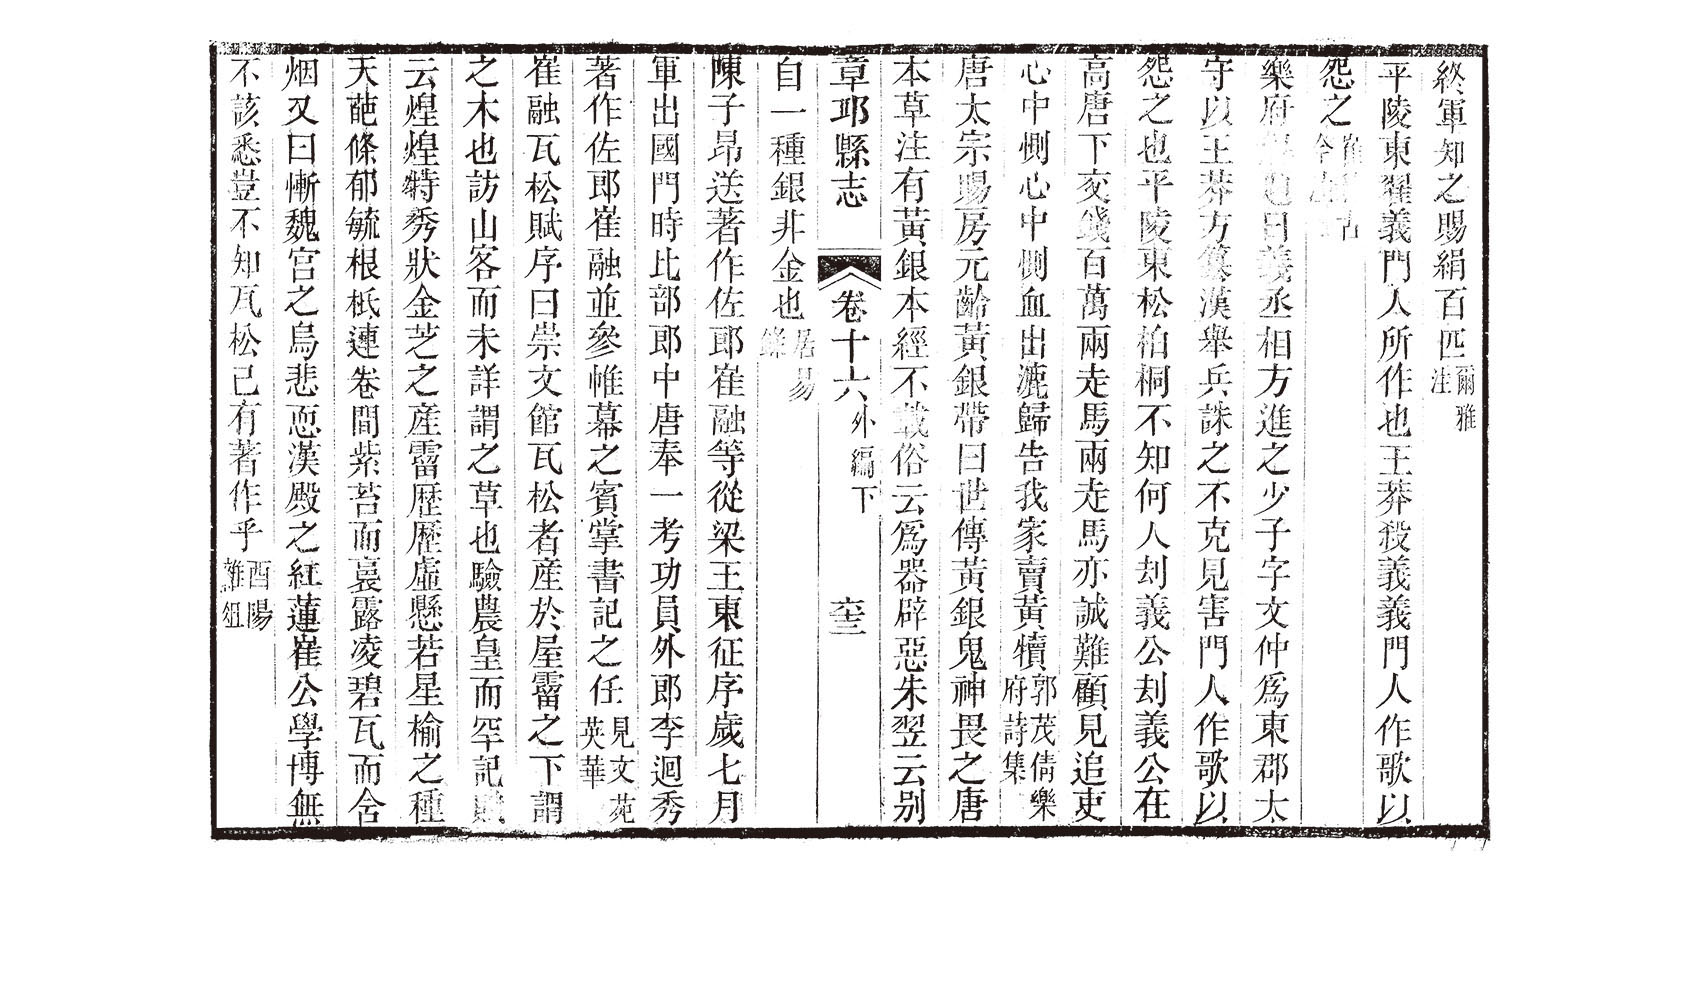 終軍知之賜絹百匹爾雅注
平陵東翟義門人所作也王莽殺義義門人作歌以
怨之崔古今
樂府曰義丞相方進之少子字文仲爲東郡太
守以王莽方篡漢舉兵誅之不克見害門人作歌以
怨之也平陵東松柏桐不知何人刦義公刦義公在
高唐下交錢百萬兩走馬兩走馬亦誠難顧見追吏
心中惻心中惻血出漉歸告我家賣黃犢郭茂倩樂府詩集
唐太宗賜房元齡黃銀帶曰世傳黃銀鬼神畏之唐
本草注有黃銀本經不載俗云爲器辟惡朱翌云別
章邱縣志 卷十六外編下 六十三
自一種銀非金也居易錄
陳子昂送著作佐郎崔融等從梁王東征序歲七月
軍出國門時比部郎中唐奉一考功員外郎李迴秀
著作佐郎崔融並參帷幕之賓掌書記之任見文苑英華
崔融瓦松賦序曰崇文館瓦松者產於屋霤之下謂
之木也訪山客而未詳謂之草也驗農皇而罕記賦
云煌煌特秀狀金芝之產霤歷歷虛懸若星榆之種
天葩條郁毓根柢連卷間紫苔而裛露凌碧瓦而含
烟又曰慚魏宮之烏悲恧漢殿之紅蓮崔公學博無
不該悉豈不知瓦松已有著作乎酉陽雜俎